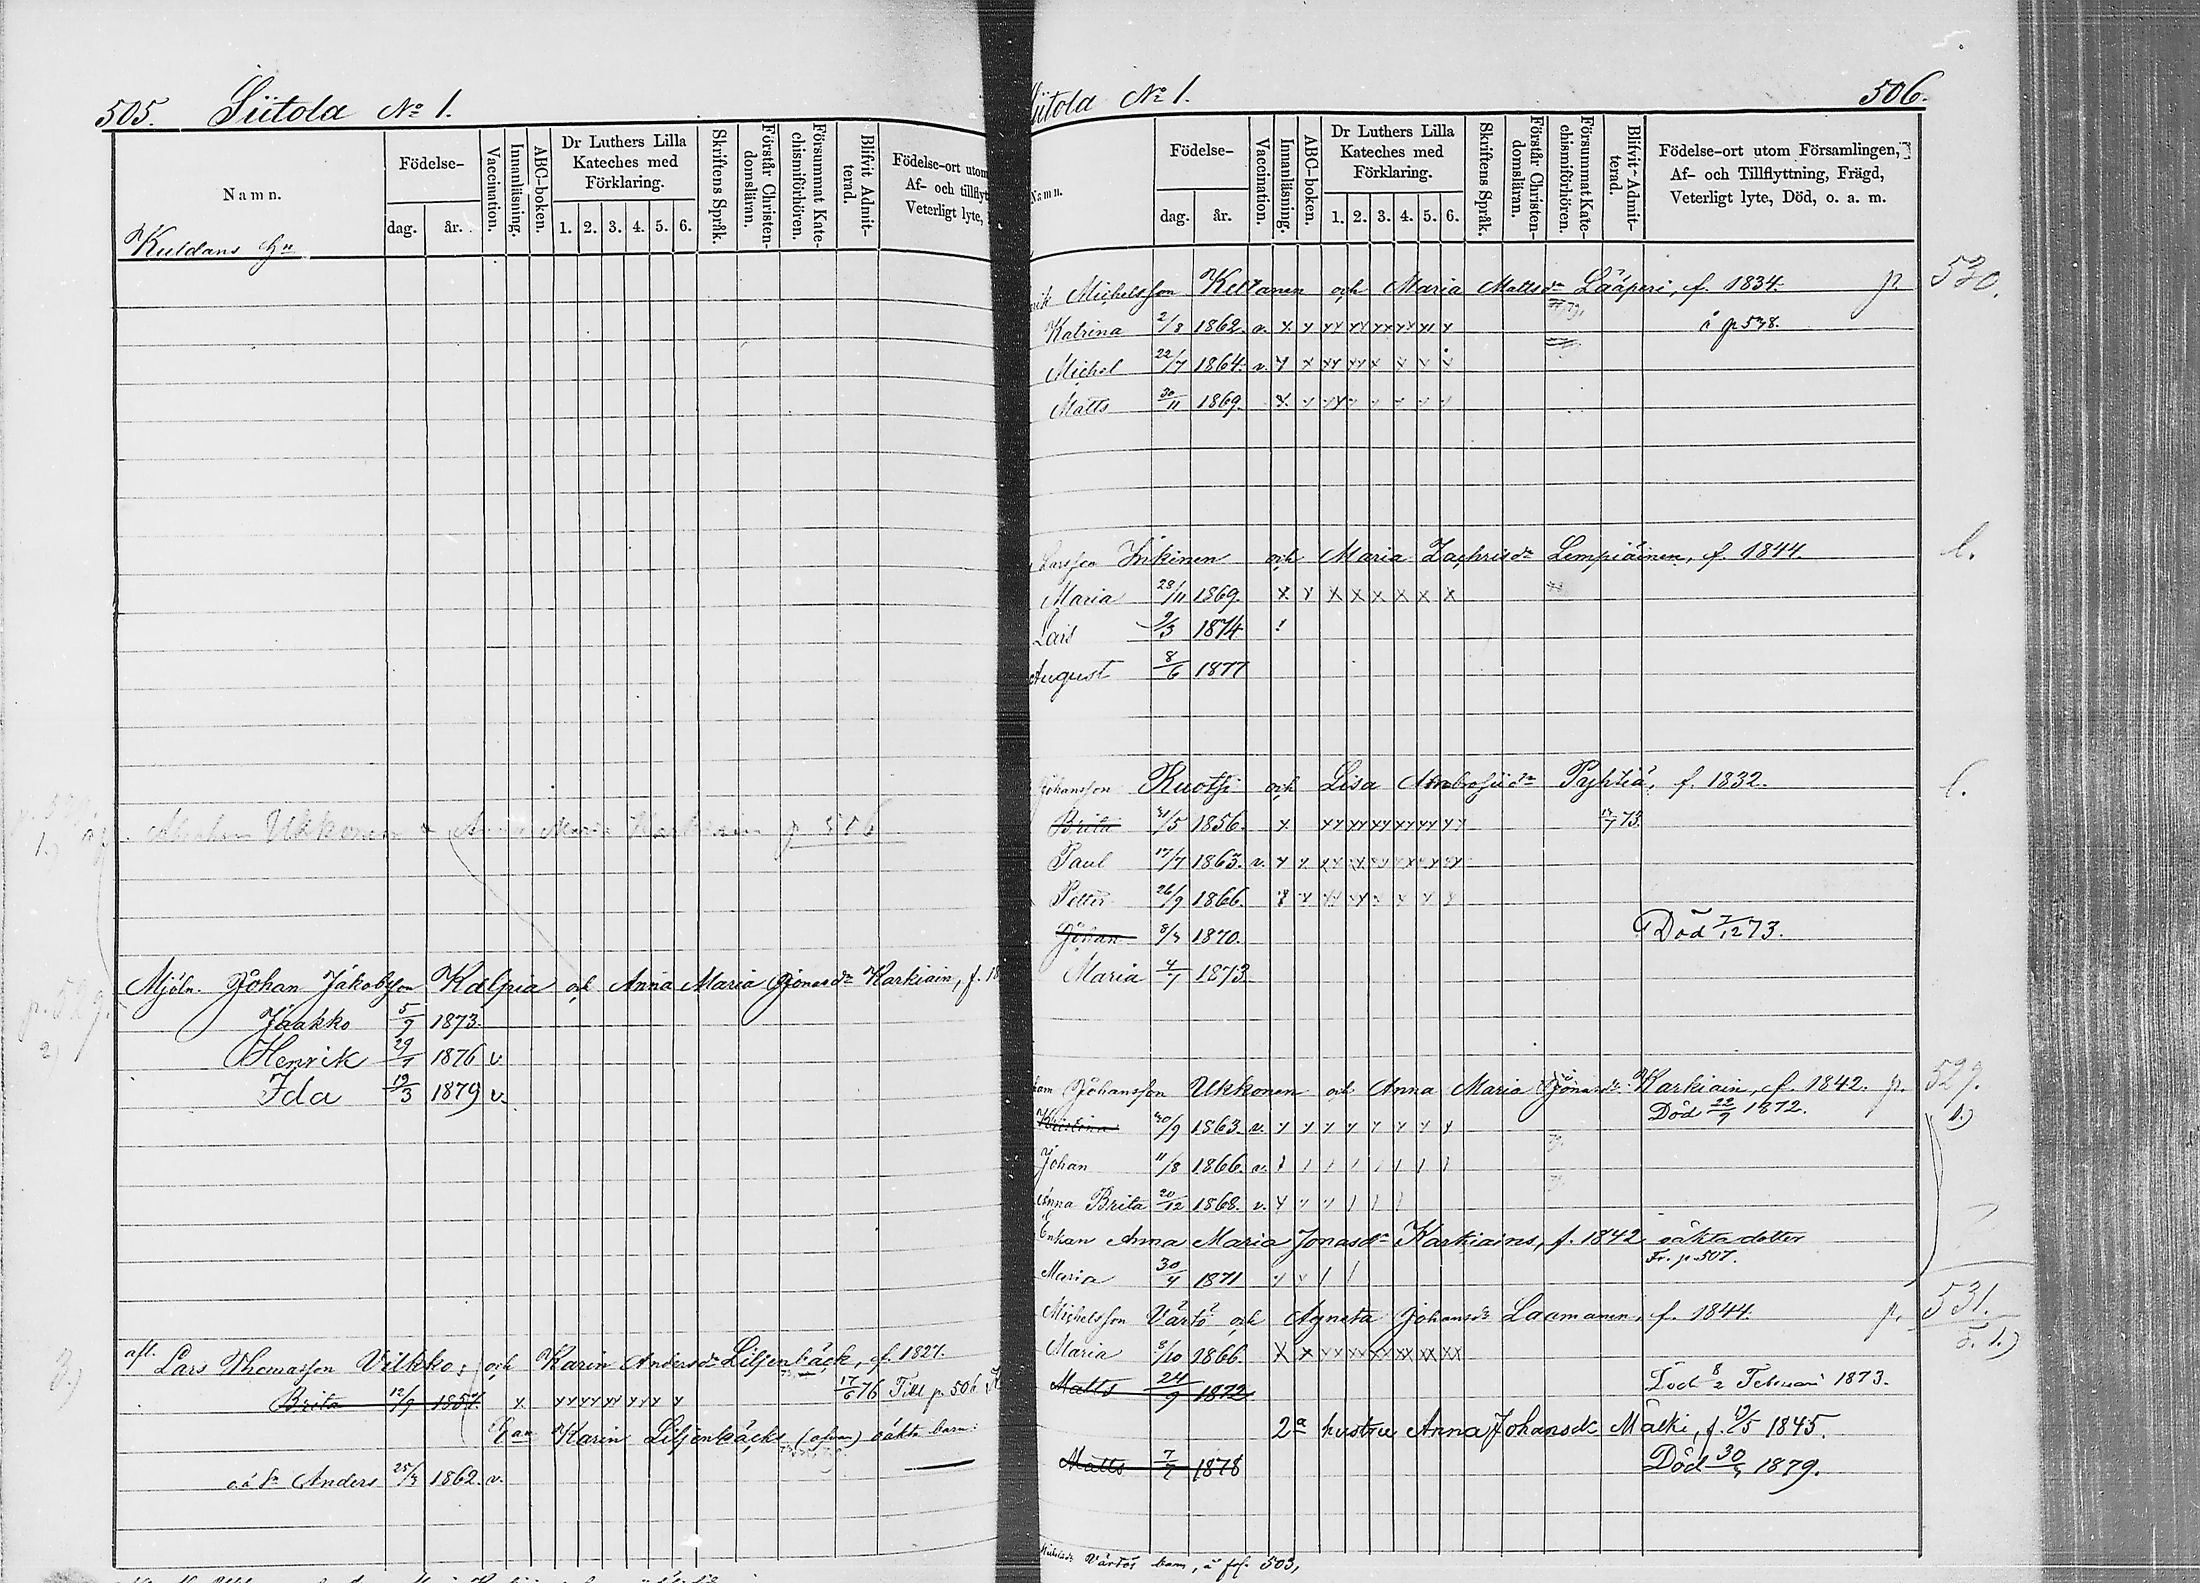 505. Siitola No 1.
Namn.
Födelse-
dag. år.
Vaccination.
Innanläsning.
ABC-boken.
Dr Luthers Lilla
Kateches med
Förklaring.
1. 2. 3. 4. 5. 6.
Skriftens Språk.
Förstår Christen-
domsläran.
Försummat Kate-
chismiförhören.
Blifvit Admit-
terad.
Födelse-ort utom
Af- och tillflyt
Veterligt lyte,
Kuldans
Abraham Ukkonen Anna Maria Karkiain p 506
1.)
Mjöln. Johan Jakobsson Kälpiä och Anna Maria Jonasdr Karkiain, f. 18
p. 529.
Jaakko 5/9 1873.
2)
Henrik 29/7 1876 v.
Ida 19/3 1879 v.
3.)
afl. Lars Thomasson Vilkko, och Karin Andersdr Liljenbäck, f. 1827.
Brita 12/9 1857. x x x x x x x x x 17/6 76 Till p 506
Karin Liljenbäcks (afvan) oäkta barn:
oä Sn Anders 25/3 1862. v.
Siitola No 1. 506.
Namn.
Födelse-
dag. år.
Vaccination.
Innanläsning.
ABC-boken.
Dr Luthers Lilla
Kateches med
Förklaring.
1. 2. 3. 4. 5. 6.
Skriftens Språk.
Förstår Christen-
domsläran.
Försummat Kate-
chismiförhören.
Blifvit Admit-
terad.
Födelse-ort utom Församlingen,
Af- och Tillflyttning, Frägd,
Veterligt lyte, Död, o. a. m.
rik Michelsson Keltanen och Maria Mattsdr Lääperi, f. 1834. p 530.
Katrina 2/8 1862. v. x x xx xx xx xx xx x å p 538.
Michel 22/7 1864. v. x x xx xx x x x x
Matts 30/11 1869. x x xx x x x x x
Larsson Inkinen och Maria Zachrisdr Lempiäinen, f. 1844. l.
Maria 28/11 1869. x x x x x x x x
Lars 9/3 1874 !
August 8/6 1877
Johansson Ruotsi och Lisa Ambrosiidr Pyhtiä, f. 1832. l.
Brita 31/5 1856. x xx xx xx xx xx xx 17/7 73.
Paul 17/7 1863. v. x x xx xx xx xx xx xx
Petter 26/9 1866. x x xx xx x x x x
Johan 8/3 1870. Död 7/12 73.
Maria 4/1 1873
ham Johansson Ukkonen och Anna Maria Jonasdr Karkiain, f. 1842. p. 529.
Död 22/9 1872. 1.)
Kristina 30/9 1863. v. x x x x x x x x
Johan 11/8 1866. v. / / / / / / / /
Anna Brita 20/12 1868. v. x x x / / /
Enkan Anna Maria Jonasdr Karkiains, f. 1842 oäkta dotter
Fr. p 507.
Maria 30/4 1871 x x / /
Michelsson Värtö och Agneta Johansdr Laamanen, f. 1844. p. 531.
Maria 8/10 1866. X x xx xx xx xx xx xx
Matts 24/9 1872 Död 8/2 Februari 1873.
2a hustru Anna Johansdr Mälki, f. 19/5 1845.
Matts 7/7 1878 Död 30/5 1879.
Värtös barn, å fol. 503,